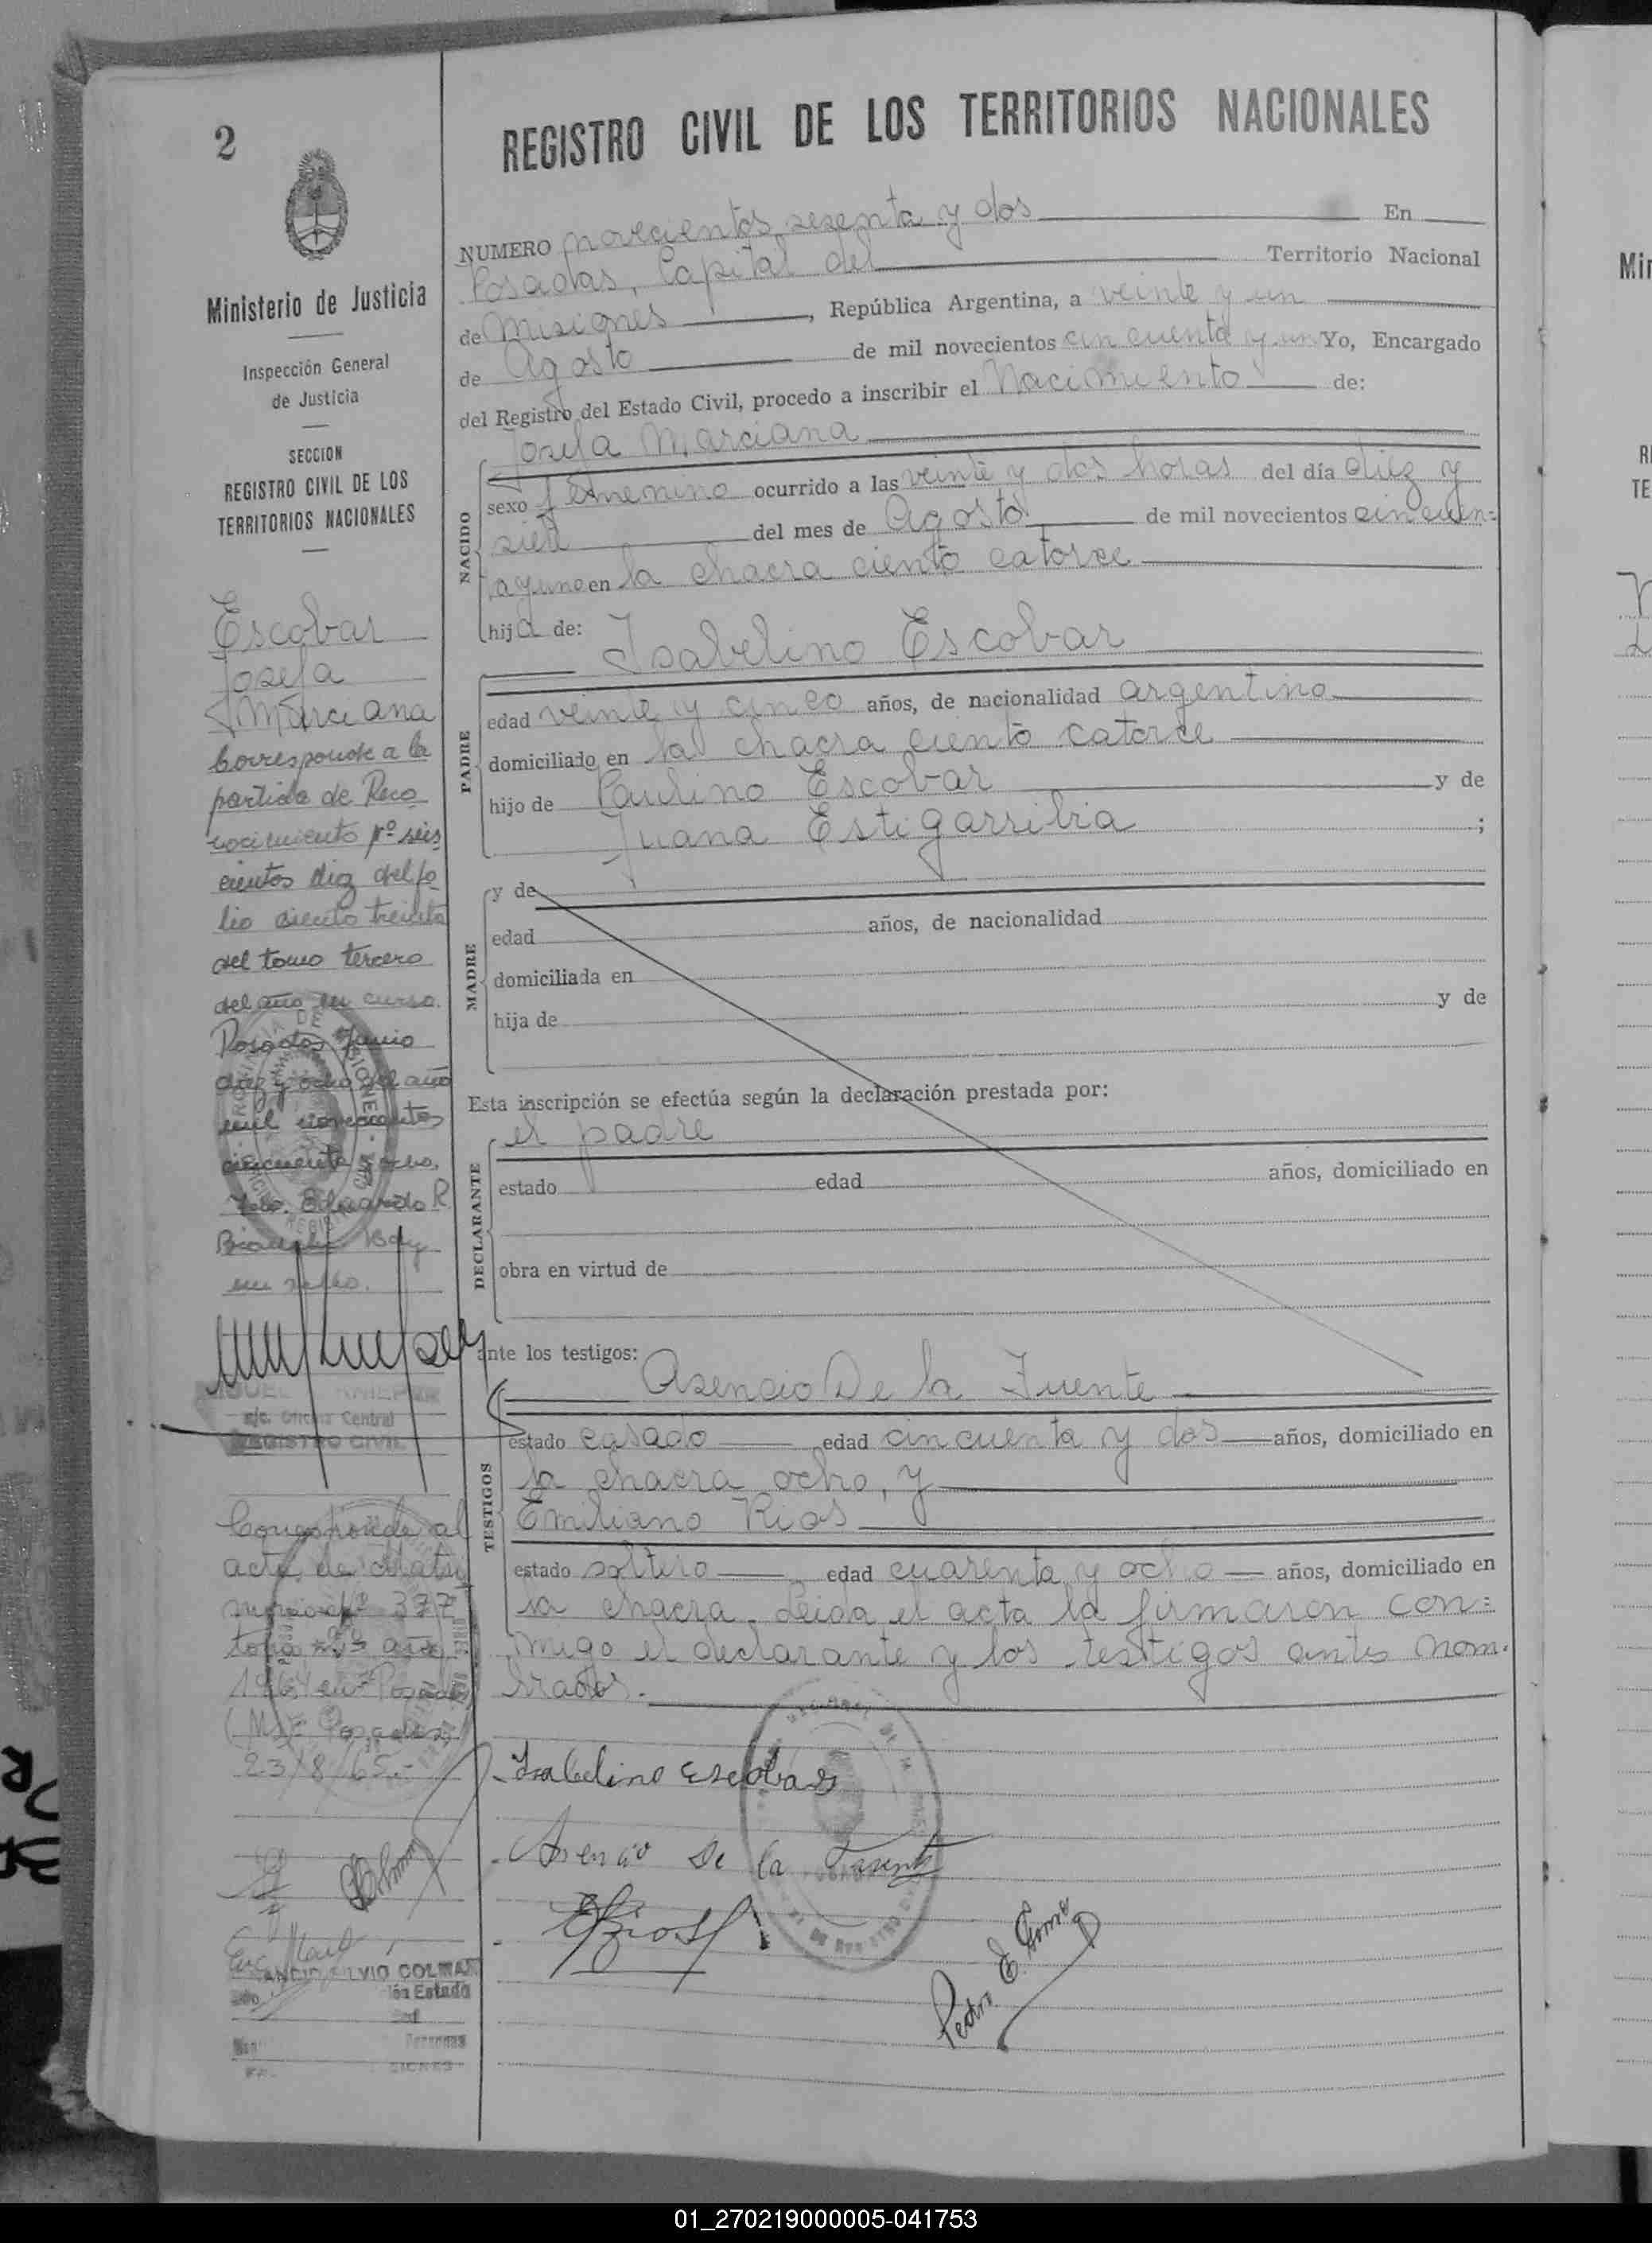 2
REGISTRO CIVIL DE LOS TERRITORIOS NACIONALES
Ministerio de Justicia
Inspección General
de Justicia
SECCION
REGISTRO CIVIL DE LOS
TERRITORIOS NACIONALES
Escobar
Josefa
Marciana
Corresponde a la
partida de Reco
nocimiento nº seis
cientos diez del fo
lio ciento treinta
del tomo tercero
del año en curso.
Posadas Junio
diez y ocho del año
mil novecientos
cincuenta y ocho.
Eduardo R.
e/c. Oficina Central
REGISTRO CIVIL
Corresponde al
acta de Matri
monio Nº 377
tomo año
1964 en Posadas
(Ms) Posadas
23/8/65.-
SILVIO COLMAN
NUMERO novecientos sesenta y dos En
Posadas, Capital del Territorio Nacional
de Misiones, República Argentina, a veinte y un
de Agosto de mil novecientos cincuenta y un Yo, Encargado
del Registro del Estado Civil, procedo a inscribir el Nacimiento de:
Josefa Marciana
NACIDO
sexo femenino ocurrido a las veinte y dos horas del día diez y
siete del mes de Agosto de mil novecientos cincuen=
tayuno en la chacra ciento catorce
hija de: Isabelino Escobar
PADRE
edad veinte y cinco años, de nacionalidad argentino
domiciliado en la chacra ciento catorce
hijo de Paulino Escobar y de
Juana Estigarribia ;
MADRE
y de
edad años, de nacionalidad
domiciliada en
hija de y de
Esta inscripción se efectúa según la declaración prestada por:
el padre
DECLARANTE
estado edad años, domiciliado en
obra en virtud de
ante los testigos: Asencio De la Fuente
TESTIGOS
estado casado edad cincuenta y dos años, domiciliado en
la chacra ocho, y
Emiliano Rios
estado soltero edad cuarenta y ocho años, domiciliado en
la chacra. Leida el acta la firmaron con=
migo el declarante y los testigos antes nom-
brados.
Isabelino Escobar
Asencio De la Fuente
ERios
Pedro E. Gomez
Mi
R
TE
01_270219000005-041753